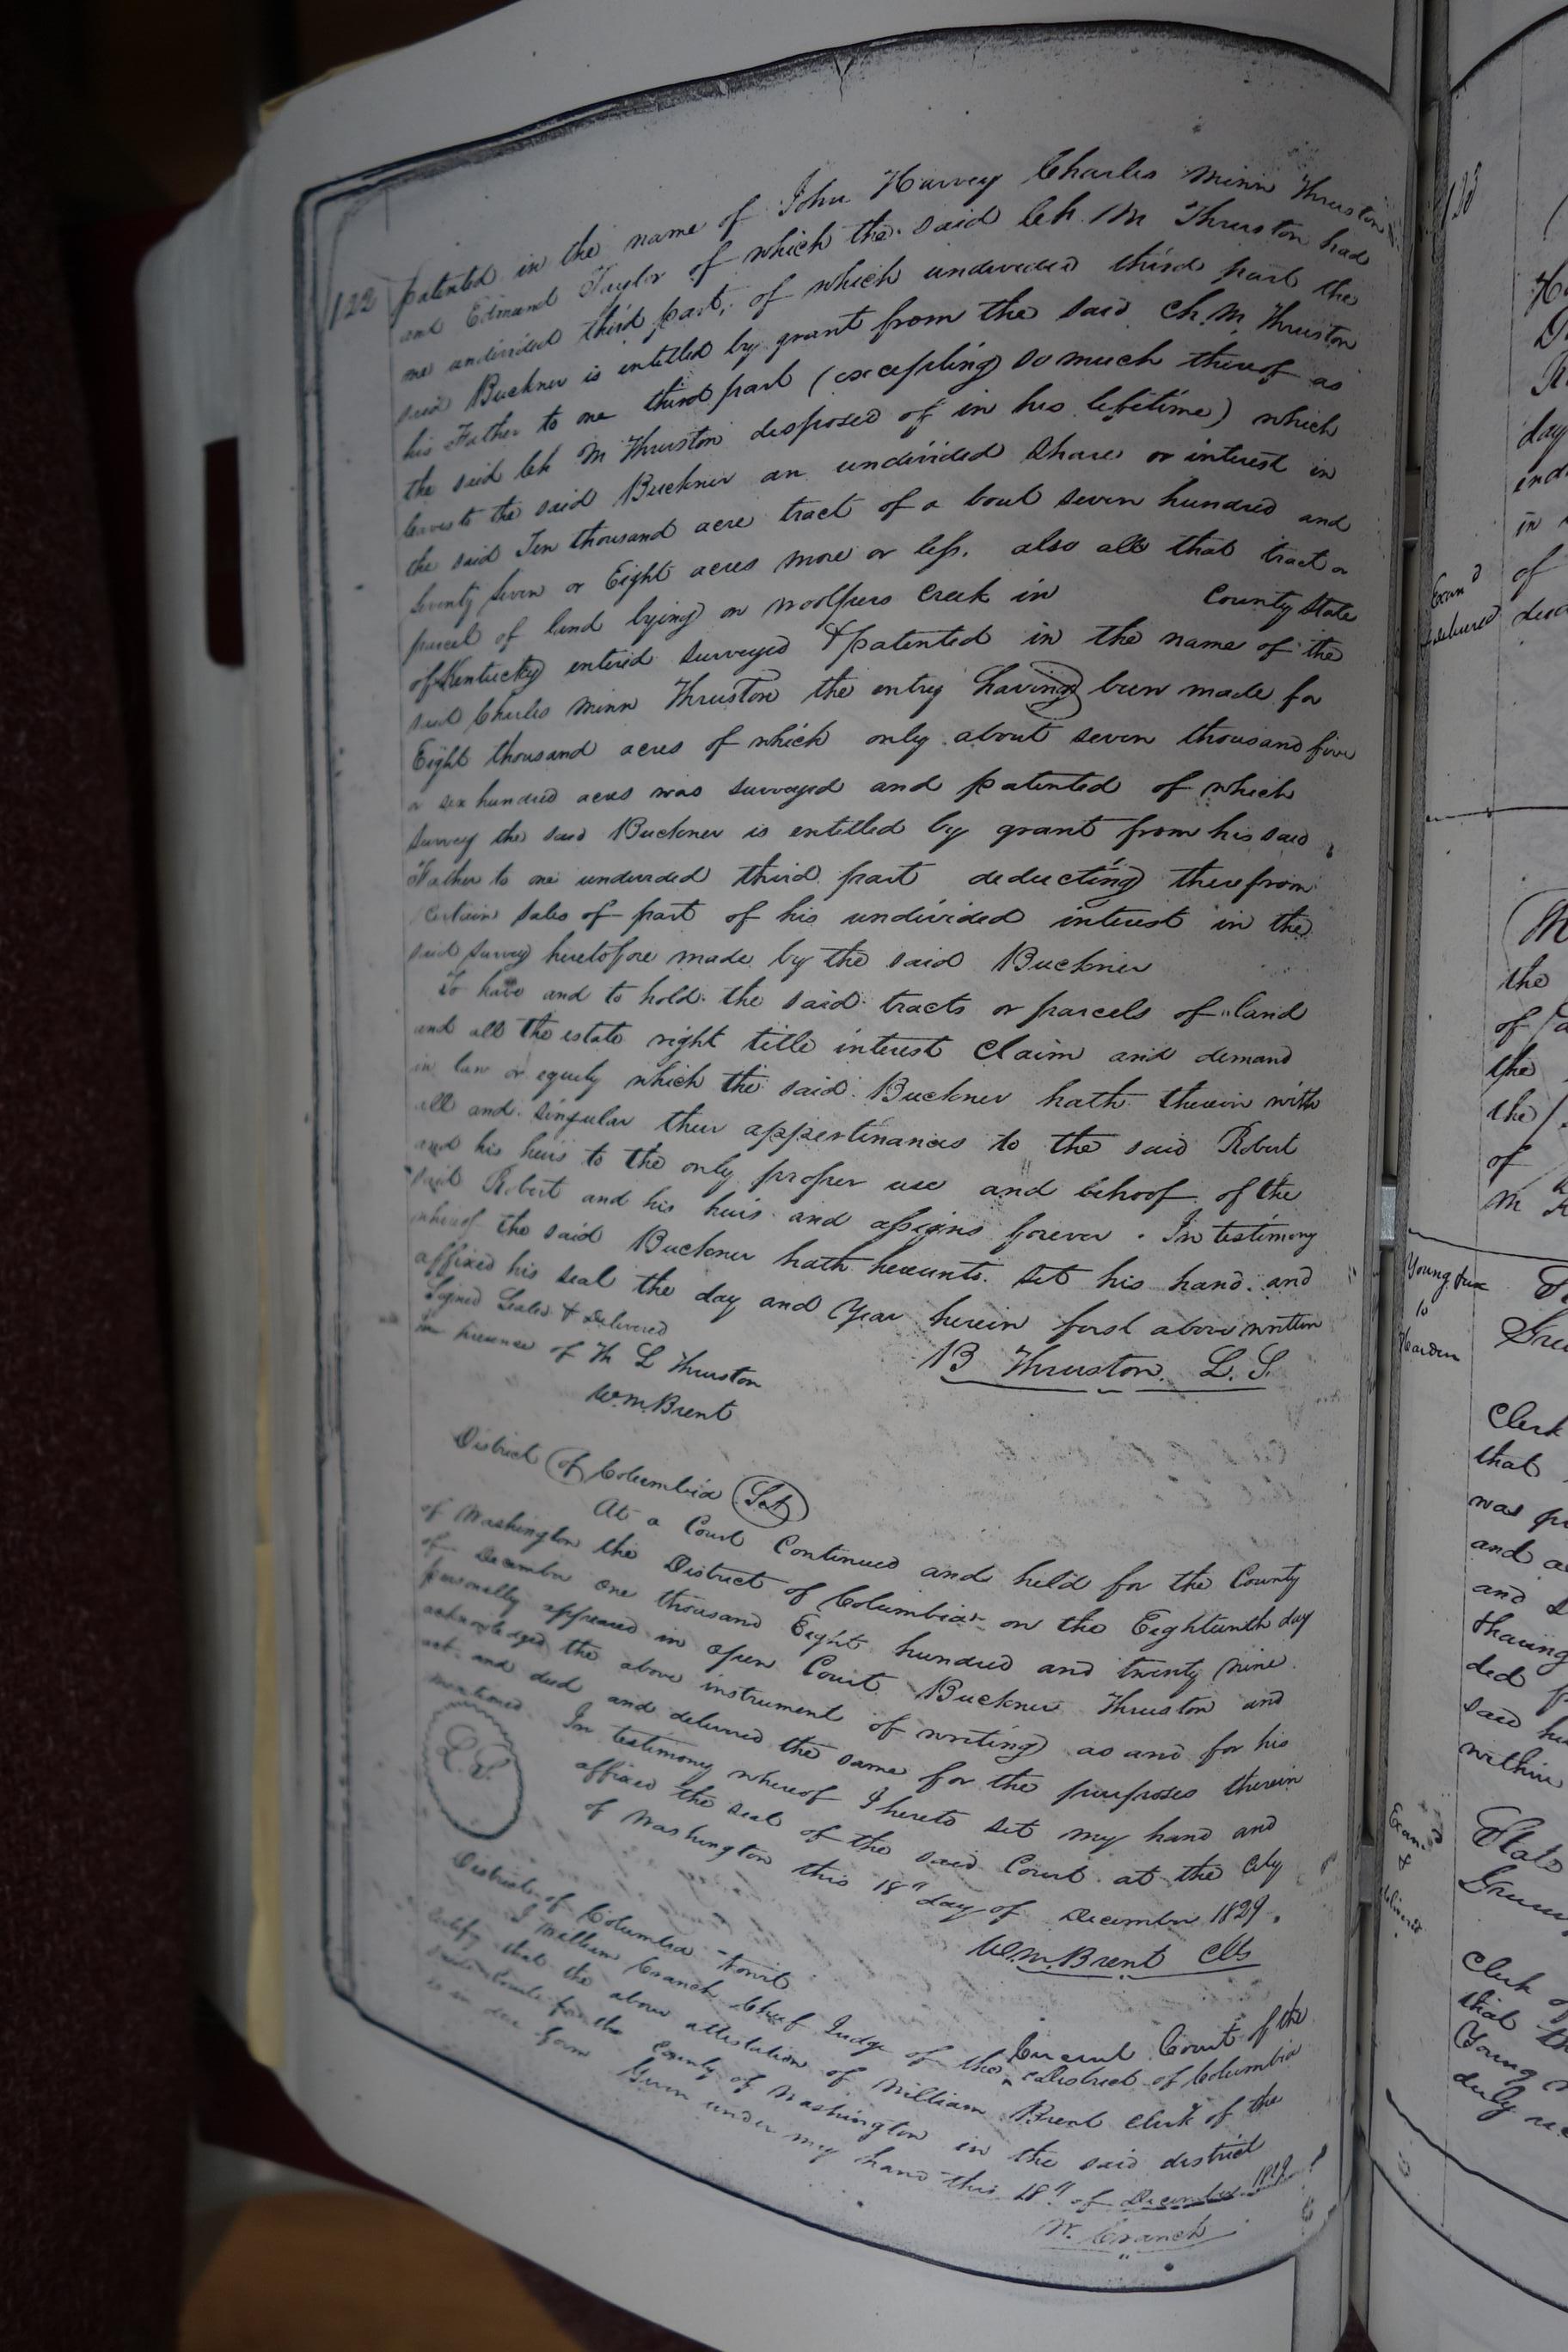 122
patented in the name of John Harvey Charles Minn Thruston
and Edmund Taylor of which the said Ch. M Thruston had
one undivided third part, of which undivided third part the
said Buckner is entitled by grant from the said Ch. M. Thruston
his Father to one third part (excepting so much thereof as
the said Ch M Thruston disposed of in his lifetime) which
leaves to the said Buckner an undivided share or interest in
the said Ten thousand acre tract of a bout seven hundred and
seventy seven or Eight acres more or less. also all that tract or
parcel of land lying on woolpers Creek in County State
of Kentucky entered surveyed & patented in the name of the
said Charles Minn Thruston the entry having been made for
Eight thousand acres of which only about seven thousand five
or six hundred acres was surveyed and patented of which
survey the said Buckner is entitled by grant from his said
Father to one undivided third part deducting therefrom
certain sales of part of his undivided interest in the
said survey heretofore made by the said Buckner
To have and to hold the said tracts or parcels of land
and all the estate right title interest Claim and demand
in law or equity which the said Buckner hath therein with
all and singular their appertinances to the said Robert
and his heirs to the only proper use and behoof of the
said Robert and his heirs and assigns forever. In testimony
whereof the said Buckner hath hereunto set his hand and
affixed his seal the day and Year herein first above written
Signed Sealed & Delivered
in presence of Th L Thruston
B Thruston L. S.
Wm Brent
District of Columbia Sct
At a Court Continued and held for the County
of Washington the District of Columbia on the Eighteenth day
of December one thousand Eight hundred and twenty nine
personally appeared in open Court Buckner Thruston and
acknowledged the above instrument of writing as and for his
act and deed and delivered the same for the purposes therein
mentioned. In testimony whereof I hereto set my hand and
L.S.
affixed the seal of the said Court at the City
of Washington this 18th day of December 1829.
Wm Brent Clk
District of Columbia
I William Cranch Chief Judge of the Circuit Court of the District of Columbia
certify that the above attestation of William Brent clerk of the
for the County of Washington in the said district
is in due form Given under my hand this 18th of December 1829
W. Cranch
123
day
in
of
Exand
delivered
the
of
the
the
of
Young
to
Harden
Clerk
that
was
and
and
said
within
State
Clerk
that
Young
duly